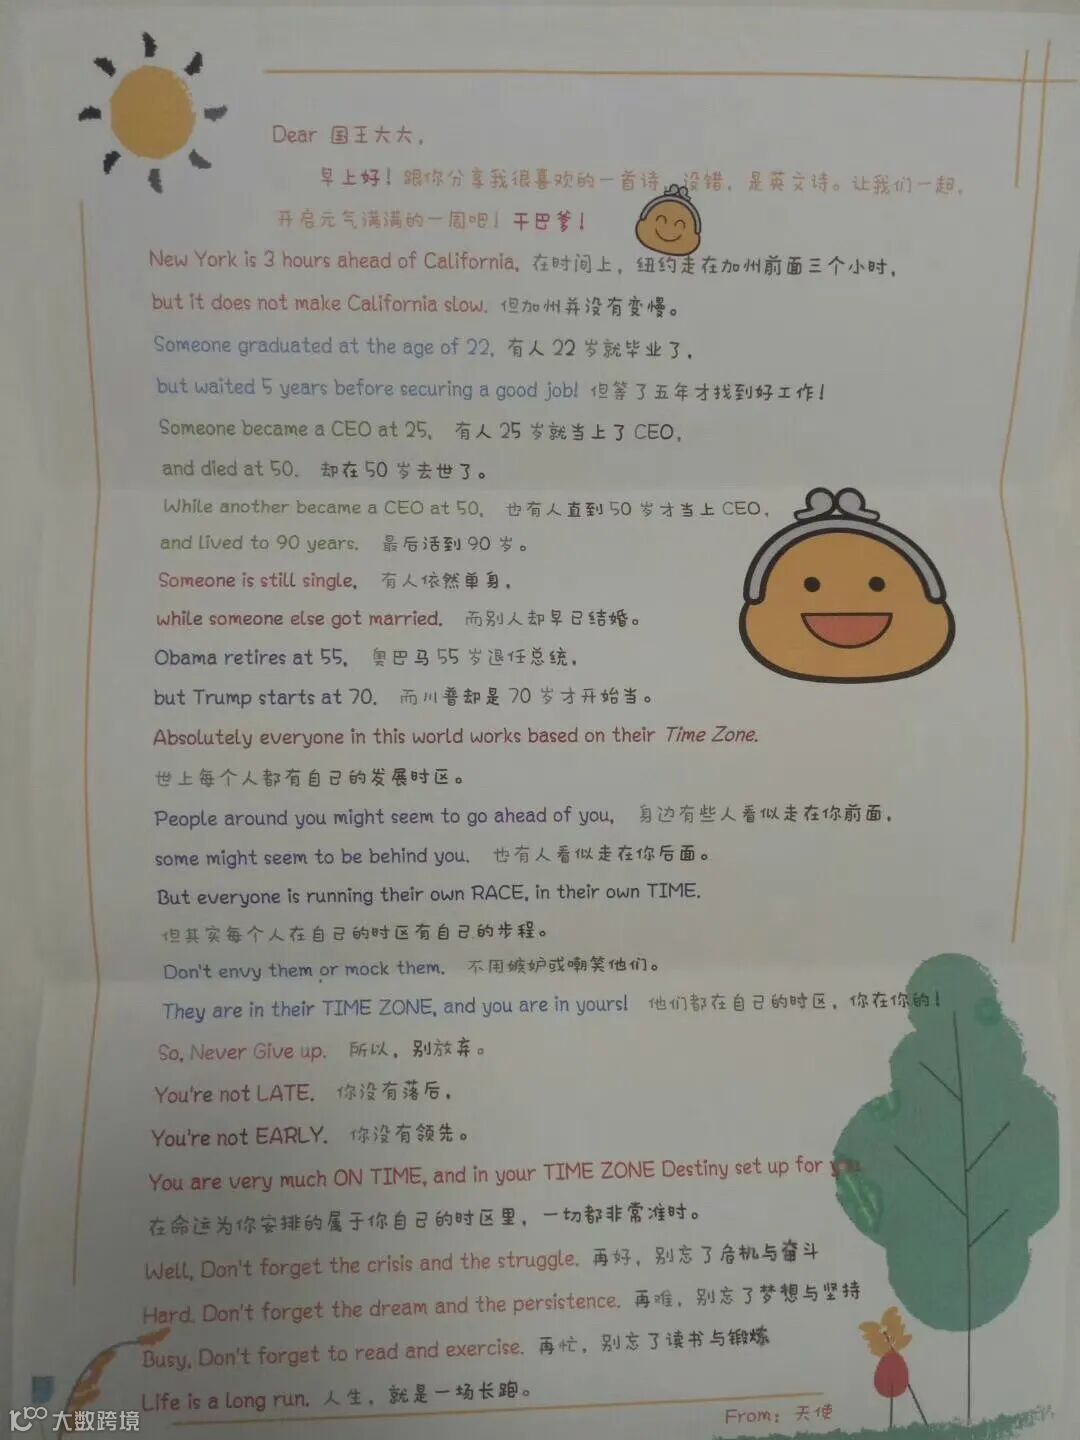 Dear 国王大大，
早上好！跟你分享我很喜欢的一首诗，没错，是英文诗。让我们一起，
开启元气满满的一周吧！干巴爹！
New York is 3 hours ahead of California, 在时间上，纽约走在加州前面三个小时，
but it does not make California slow. 但加州并没有变慢。
Someone graduated at the age of 22, 有人22岁就毕业了，
but waited 5 years before securing a good job! 但等了五年才找到好工作！
Someone became a CEO at 25, 有人25岁就当上了CEO，
and died at 50. 却在50岁去世了。
While another became a CEO at 50, 也有人直到50岁才当上CEO，
and lived to 90 years. 最后活到90岁。
Someone is still single, 有人依然单身，
while someone else got married. 而别人却早已结婚。
Obama retires at 55, 奥巴马55岁退任总统，
but Trump starts at 70. 而川普却是70岁才开始当。
Absolutely everyone in this world works based on their Time Zone.
世上每个人都有自己的发展时区。
People around you might seem to go ahead of you, 身边有些人看似走在你前面，
some might seem to be behind you. 也有人看似走在你后面。
But everyone is running their own RACE, in their own TIME.
但其实每个人在自己的时区有自己的步程。
Don't envy them or mock them. 不用嫉妒或嘲笑他们。
They are in their TIME ZONE, and you are in yours! 他们都在自己的时区，你在你的！
So, Never Give up. 所以，别放弃。
You're not LATE. 你没有落后，
You're not EARLY. 你没有领先。
You are very much ON TIME, and in your TIME ZONE Destiny set up for you
在命运为你安排的属于你自己的时区里，一切都非常准时。
Well, Don't forget the crisis and the struggle. 再好，别忘了危机与奋斗
Hard, Don't forget the dream and the persistence. 再难，别忘了梦想与坚持
Busy, Don't forget to read and exercise. 再忙，别忘了读书与锻炼
Life is a long run. 人生，就是一场长跑。
From：天使
大数跨境